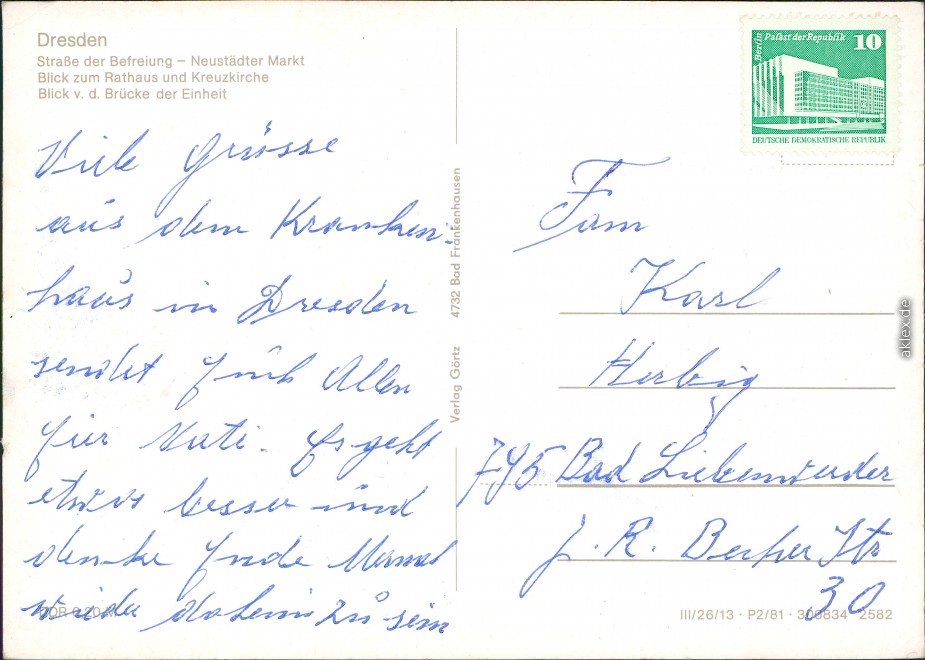 Dresden
Straße der Befreiung – Neustädter Markt
Blick zum Rathaus und Kreuzkirche
Blick v. d. Brücke der Einheit
Viele Grüsse
aus dem Kranken-
haus in Dresden
sendet Allen
für Vati. Es geht
etwas besser und
denke Ende Monat
wieder daheim zu sein
DDR 0,20 M
Verlag Görtz 4732 Bad Frankenhausen
Berlin Palast der Republik 10
DEUTSCHE DEMOKRATISCHE REPUBLIK
Fam
Karl
Herbig
795 Bad Liebenwerder
J. R. Becher Str
30
III/26/13 · P2/81 · 300834 2582
aklex.de